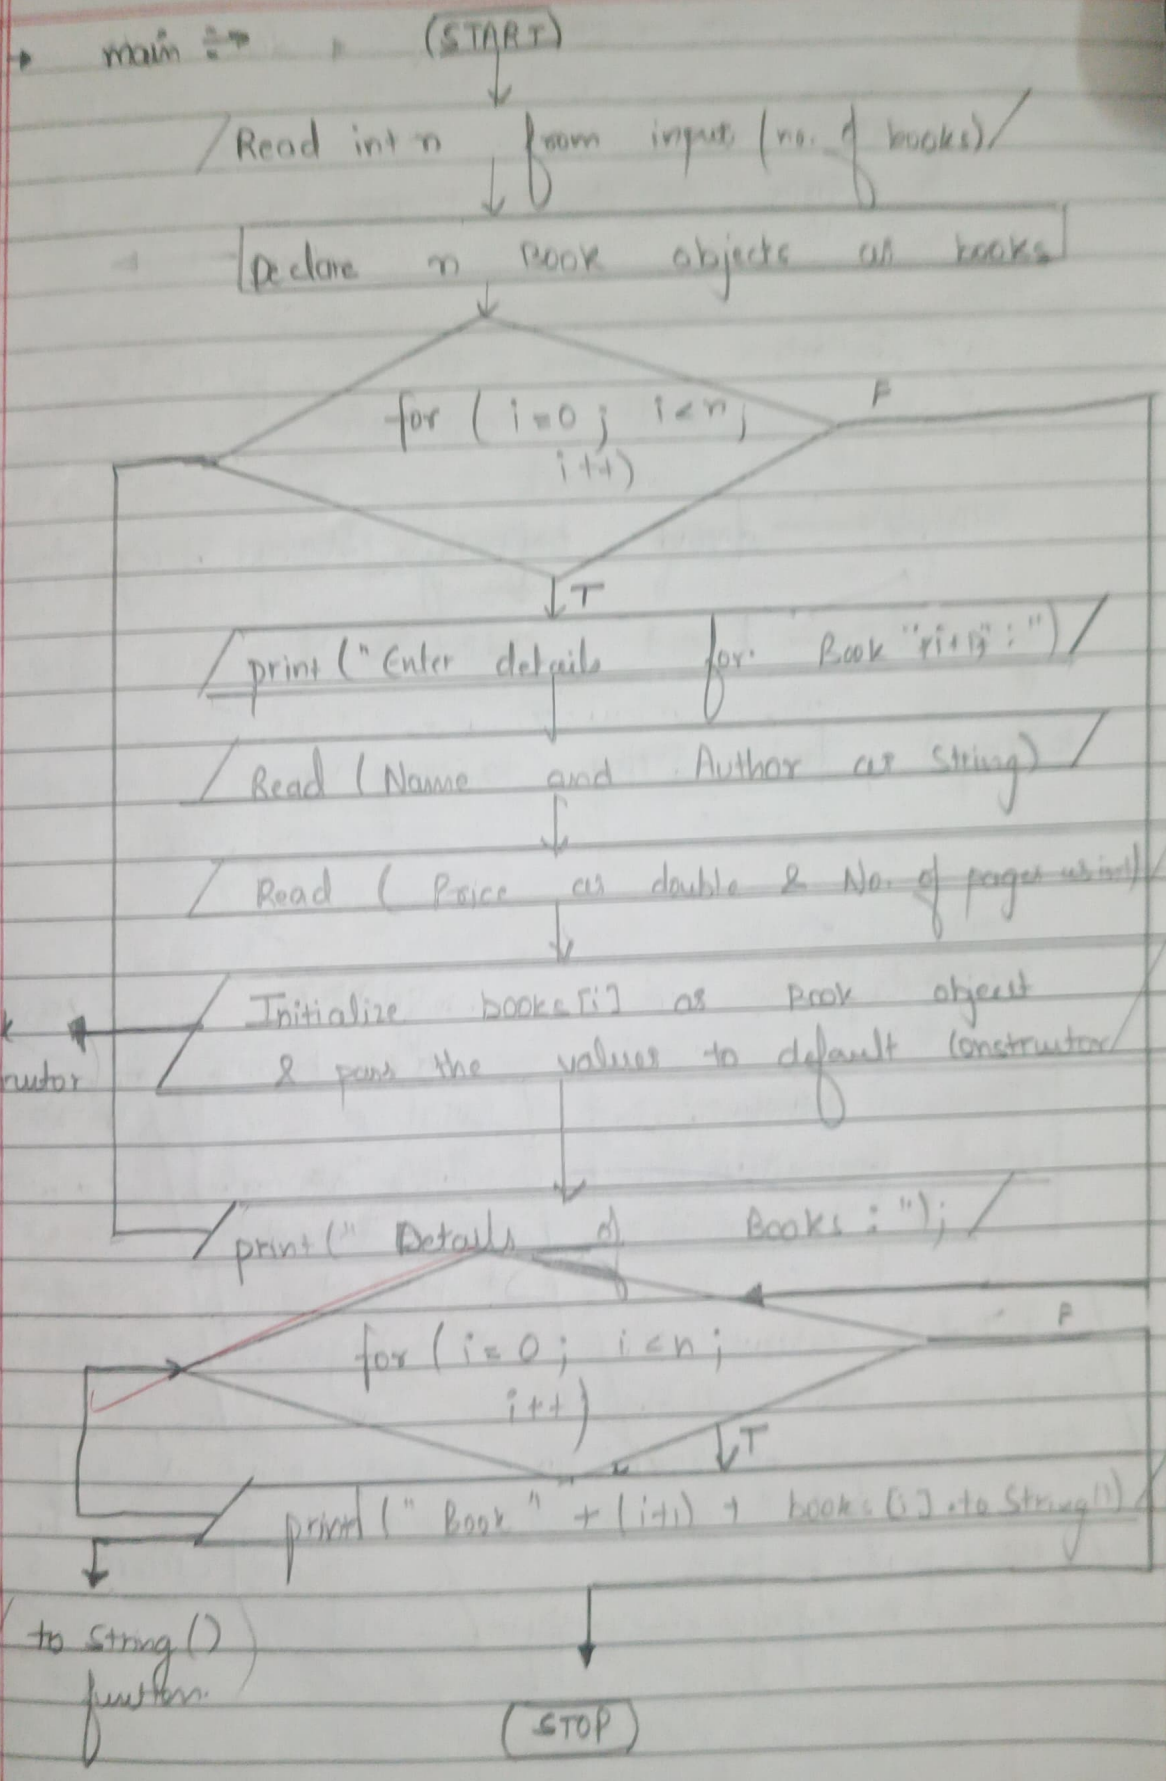 main :→
START
Read int n from input (no. of books)
Declare n Book objects as books
for ( i=0 ; i<n ;
F
i++)
T
print ("Enter details for Book "+(i+1)+":")
Read (Name and Author as String)
Read ( Price as double & No. of pages as int)
Initialize books[i] as Book object
& pass the values to default Constructor
print(" Details of Books : ");
F
for ( i = 0 ; i < n ;
i++)
T
print (" Book " + (i+1) + books [i] .to String())
to String ()
function.
STOP